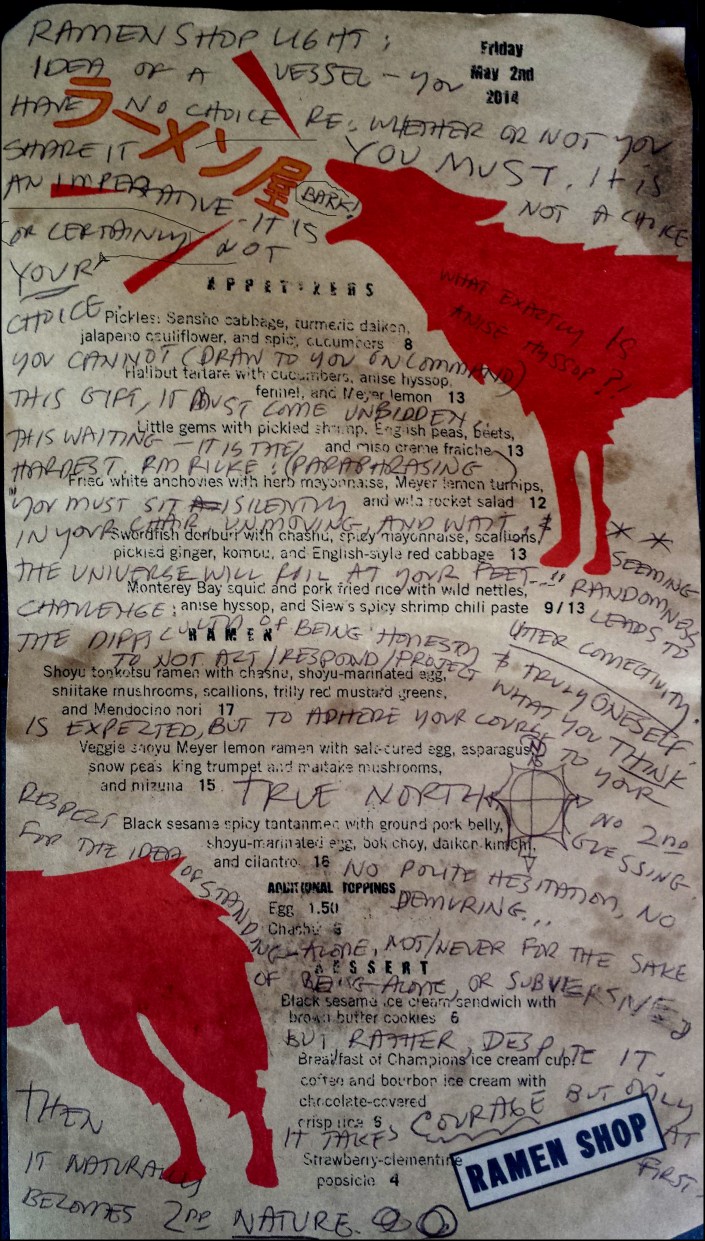 RAMEN SHOP LIGHT:
Friday
May 2nd
2014
IDEA OF A VESSEL – YOU
HAVE NO CHOICE RE: WHETHER OR NOT YOU
SHARE IT YOU MUST. IT IS
ラーメン屋
AN IMPERATIVE NOT A CHOICE
BARK!
OR CERTAINLY – IT IS
NOT
YOUR
CHOICE.
WHAT EXACTLY IS
ANISE HYSSOP?!
APPETIZERS
Pickles: Sansho cabbage, turmeric daikon,
jalapeno cauliflower, and spicy cucumbers 8
YOU CANNOT (DRAW TO YOU ON COMMAND)
Halibut tartare with cucumbers, anise hyssop,
fennel, and Meyer lemon 13
THIS GIFT, IT MUST COME UNBIDDEN.
Little gems with pickled shrimp, English peas, beets,
and miso creme fraiche 13
THIS WAITING – IT IS THE
HARDEST. RM RILKE: (PARAPHRASING)
Fried white anchovies with herb mayonnaise, Meyer lemon turnips,
and wild rocket salad 12
"YOU MUST SIT SILENTLY
IN YOUR CHAIR, UNMOVING, AND WAIT, &
Swordfish donburi with chashu, spicy mayonnaise, scallions,
pickled ginger, kombu, and English-style red cabbage 13
THE UNIVERSE WILL ROIL AT YOUR FEET..."
Monterey Bay squid and pork fried rice with wild nettles,
anise hyssop, and Siew's spicy shrimp chili paste 9/13
* * SEEMING
RANDOMNESS
LEADS TO
UTTER CONNECTIVITY.
CHALLENGE:
THE DIFFICULTY OF BEING HONESTLY & TRULY ONESELF.
RAMEN
TO NOT ACT/RESPOND/PROJECT WHAT YOU THINK
Shoyu tonkotsu ramen with chashu, shoyu-marinated egg,
shiitake mushrooms, scallions, frilly red mustard greens,
and Mendocino nori 17
IS EXPECTED, BUT TO ADHERE YOUR COURSE TO YOUR
Veggie shoyu Meyer lemon ramen with salt-cured egg, asparagus,
snow peas, king trumpet and maitake mushrooms,
and mizuna 15
TRUE NORTH
N
NO 2ND
GUESSING.
Black sesame spicy tantanmen with ground pork belly,
shoyu-marinated egg, bok choy, daikon kimchi,
and cilantro 16
NO POLITE HESITATION, NO
DEMURING...
RESPECT
FOR THE IDEA
OF STAND
ING-ALONE, NOT/NEVER FOR THE SAKE
ADDITIONAL TOPPINGS
Egg 1.50
Chashu
OF BEING-ALONE, OR SUBVERSIVE
DESSERT
Black sesame ice cream sandwich with
brown butter cookies 6
BUT RATHER, DESPITE IT.
Breakfast of Champions ice cream cup:
coffee and bourbon ice cream with
chocolate-covered
crisp rice 6
IT TAKES COURAGE BUT ONLY
AT
FIRST.
Strawberry-clementine
popsicle 4
RAMEN SHOP
THEN
IT NATURALLY
BECOMES 2ND NATURE.